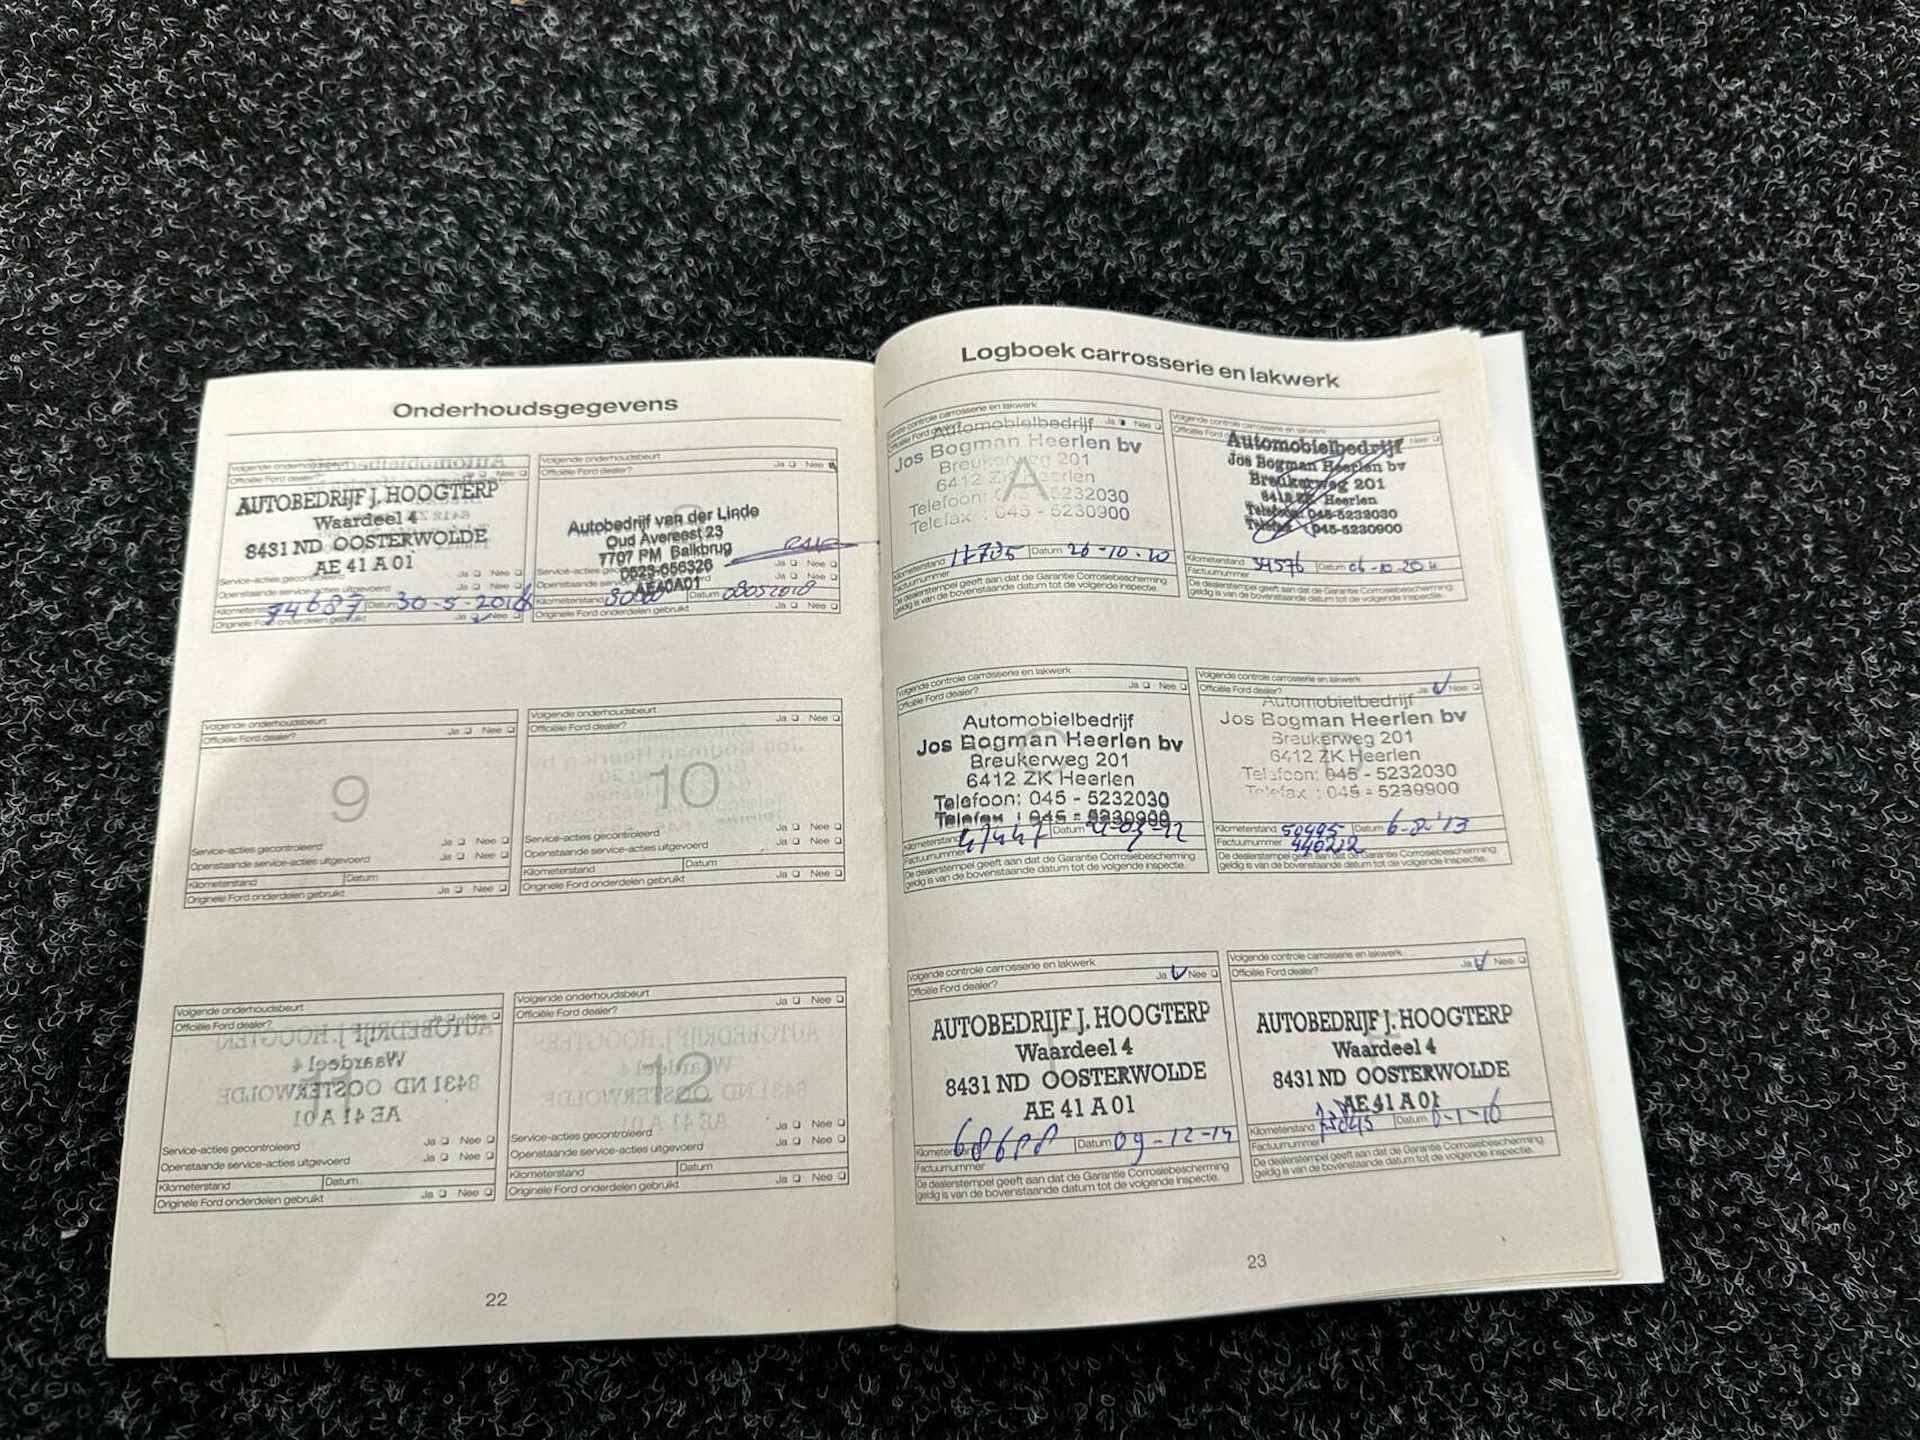 Onderhoudsgegevens
Volgende onderhoudsbeurt
Officiële Ford dealer? Ja Nee
AUTOBEDRIJF J. HOOGTERP
Waardeel 4
8431 ND OOSTERWOLDE
AE 41 A 01
Service-acties gecontroleerd Ja Nee
Openstaande service-acties uitgevoerd Ja Nee
Kilometerstand 74687 Datum 30-5-2016
Originele Ford onderdelen gebruikt Ja Nee
Volgende onderhoudsbeurt
Officiële Ford dealer? Ja Nee
Autobedrijf van der Linde
Oud Avereest 23
7707 PM Balkbrug
0523-656326
AE40A01
Ja Nee
Openstaande Ja Nee
Kilometerstand Datum 08052018
Originele Ford onderdelen gebruikt Ja Nee
Volgende onderhoudsbeurt
Officiële Ford dealer? Ja Nee
9
Service-acties gecontroleerd Ja Nee
Openstaande service-acties uitgevoerd Ja Nee
Kilometerstand Datum
Originele Ford onderdelen gebruikt Ja Nee
Volgende onderhoudsbeurt
Officiële Ford dealer? Ja Nee
10
Service-acties gecontroleerd Ja Nee
Openstaande service-acties uitgevoerd Ja Nee
Kilometerstand Datum
Originele Ford onderdelen gebruikt Ja Nee
Volgende onderhoudsbeurt
Officiële Ford dealer? Ja Nee
11
Service-acties gecontroleerd Ja Nee
Openstaande service-acties uitgevoerd Ja Nee
Kilometerstand Datum
Originele Ford onderdelen gebruikt Ja Nee
Volgende onderhoudsbeurt
Officiële Ford dealer? Ja Nee
12
Service-acties gecontroleerd Ja Nee
Openstaande service-acties uitgevoerd Ja Nee
Kilometerstand Datum
Originele Ford onderdelen gebruikt Ja Nee
22
Logboek carrosserie en lakwerk
controle carrosserie en lakwerk
Officiële Ford dealer? Ja Nee
Automobielbedrijf
Jos Bogman Heerlen bv
Breukerweg 201
A
6412 ZK Heerlen
Telefoon: 045 - 5232030
Telefax : 045 - 5230900
Kilometerstand 17705 Datum 26-10-10
Factuurnummer
De dealerstempel geeft aan dat de Garantie Corrosiebescherming
geldig is van de bovenstaande datum tot de volgende inspectie.
Volgende controle carrosserie en lakwerk
Officiële Ford Nee
Automobielbedrijf
Jos Bogman Heerlen bv
Breukerweg 201
6412 ZK Heerlen
Telefoon: 045-5232030
Telefax : 045-5230900
Kilometerstand 34576 Datum 06-10-2011
Factuurnummer
De dealerstempel geeft aan dat de Garantie Corrosiebescherming
geldig is van de bovenstaande datum tot de volgende inspectie.
Volgende controle carrosserie en lakwerk
Officiële Ford dealer? Ja Nee
Automobielbedrijf
Jos Bogman Heerlen bv
Breukerweg 201
6412 ZK Heerlen
Telefoon: 045 - 5232030
Telefax : 045 - 5230900
Kilometerstand 47447 Datum
Factuurnummer
De dealerstempel geeft aan dat de Garantie Corrosiebescherming
geldig is van de bovenstaande datum tot de volgende inspectie.
Volgende controle carrosserie en lakwerk
Officiële Ford dealer? Ja Nee
Automobielbedrijf
Jos Bogman Heerlen bv
Breukerweg 201
6412 ZK Heerlen
Telefoon: 045 - 5232030
Telefax : 045 - 5230900
Kilometerstand 50495 Datum 6-8-'13
Factuurnummer 446212
De dealerstempel geeft aan dat de Garantie Corrosiebescherming
geldig is van de bovenstaande datum tot de volgende inspectie.
Volgende controle carrosserie en lakwerk
Officiële Ford dealer? Ja Nee
AUTOBEDRIJF J. HOOGTERP
Waardeel 4
8431 ND OOSTERWOLDE
AE 41 A 01
Kilometerstand Datum 09-12-14
Factuurnummer
De dealerstempel geeft aan dat de Garantie Corrosiebescherming
geldig is van de bovenstaande datum tot de volgende inspectie.
Volgende controle carrosserie en lakwerk
Officiële Ford dealer? Ja Nee
AUTOBEDRIJF J. HOOGTERP
Waardeel 4
8431 ND OOSTERWOLDE
AE 41 A 01
Kilometerstand Datum
Factuurnummer
De dealerstempel geeft aan dat de Garantie Corrosiebescherming
geldig is van de bovenstaande datum tot de volgende inspectie.
23